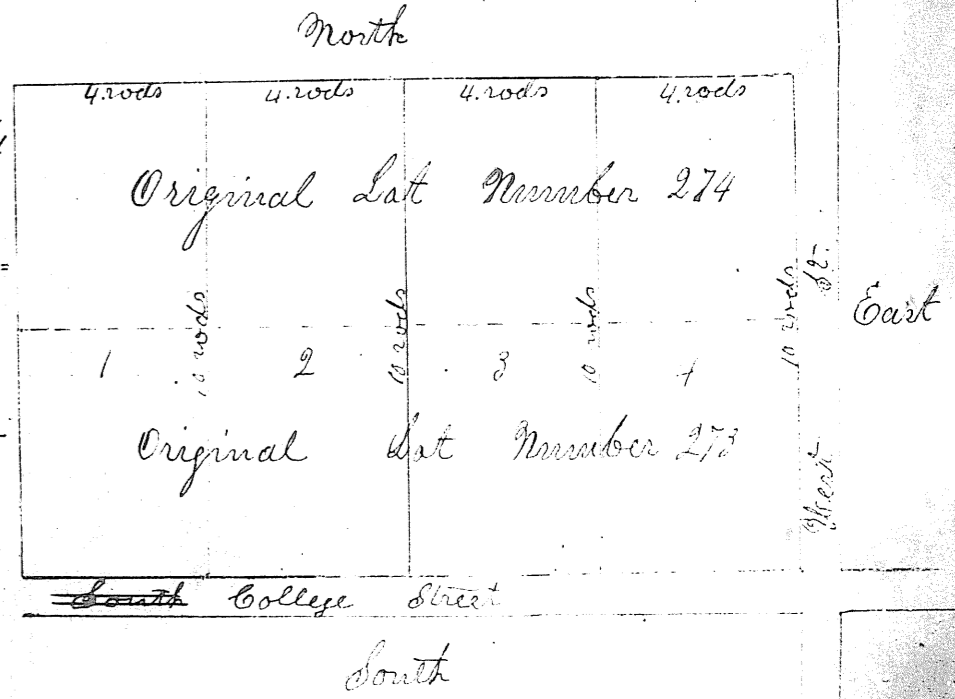 North
4.rods 4.rods 4.rods 4.rods
Original Lot Number 274
10 rods 10 rods 10 rods 10 rods
St.
East
1 2 3 4
Original Lot Number 273
West
South College Street
South